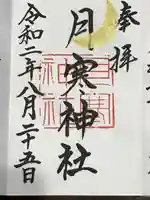 奉拝
月寒神社
令和二年八月二十五日